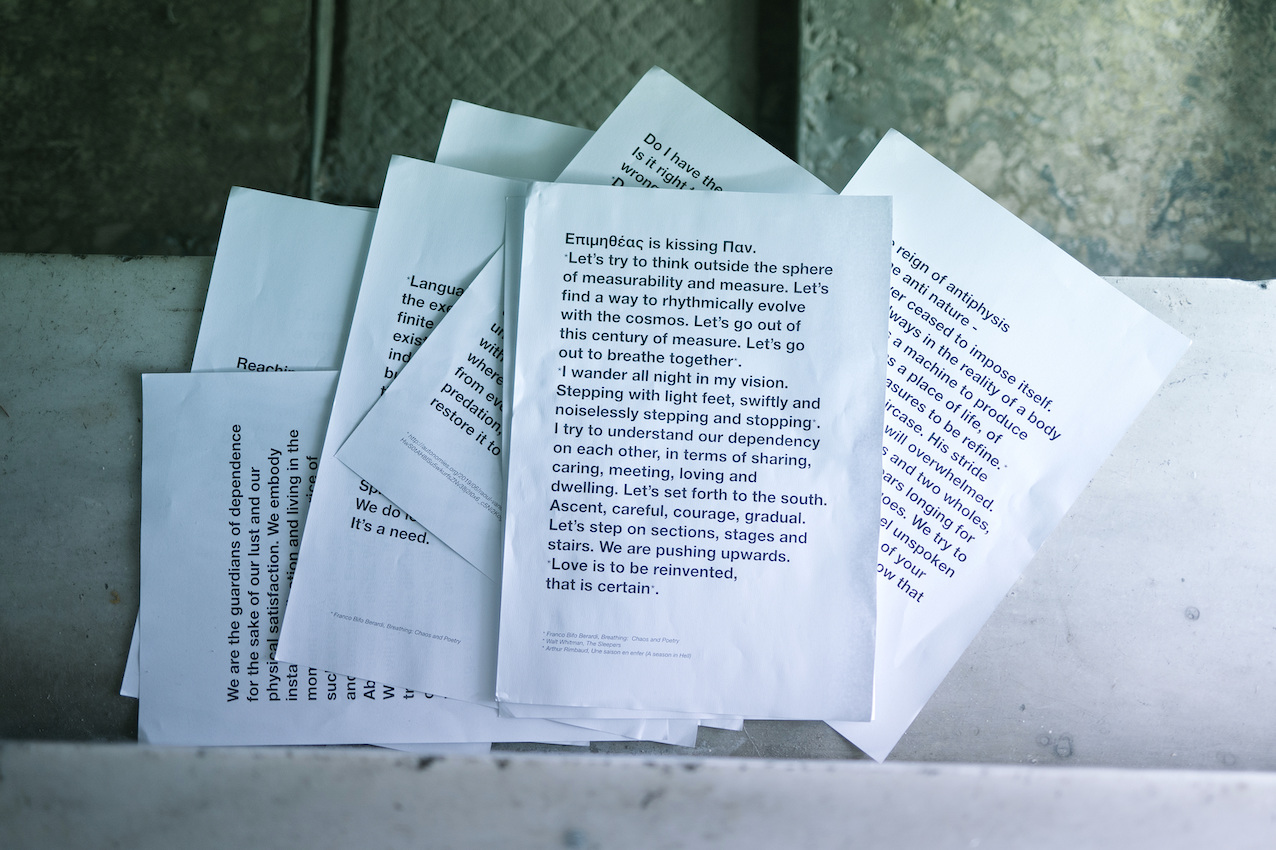 Do I have the
Is it right
wrong
Reachi
We are the guardians of dependence
for the sake of our lust and our
physical satisfaction. We embody
insta
ction and living in the
mon
suc
and
Ab
W
*Langua
the exe
finite
exist
ind
b
Sp
We do
It's a need.
* Franco Bifo Berardi, Breathing: Chaos and Poetry
un
with
where
from ev
predation,
restore it to
Επιμηθέας is kissing Παν.
*Let's try to think outside the sphere
of measurability and measure. Let's
find a way to rhythmically evolve
with the cosmos. Let's go out of
this century of measure. Let's go
out to breathe together*.
*I wander all night in my vision.
Stepping with light feet, swiftly and
noiselessly stepping and stopping*.
I try to understand our dependency
on each other, in terms of sharing,
caring, meeting, loving and
dwelling. Let's set forth to the south.
Ascent, careful, courage, gradual.
Let's step on sections, stages and
stairs. We are pushing upwards.
*Love is to be reinvented,
that is certain*.
* Franco Bifo Berardi, Breathing: Chaos and Poetry
* Walt Whitman, The Sleepers
* Arthur Rimbaud, Une saison en enfer (A season in Hell)
reign of antiphysis
e anti nature -
er ceased to impose itself.
lways in the reality of a body
s a machine to produce
s a place of life, of
asures to be refine.*
ircase. His stride
will overwhelmed.
s and two wholes,
ars longing for
oes. We try to
el unspoken
of your
ow that